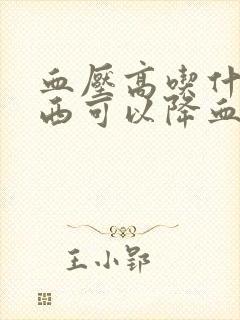 血壓高喫什
西可以降血
王小郢